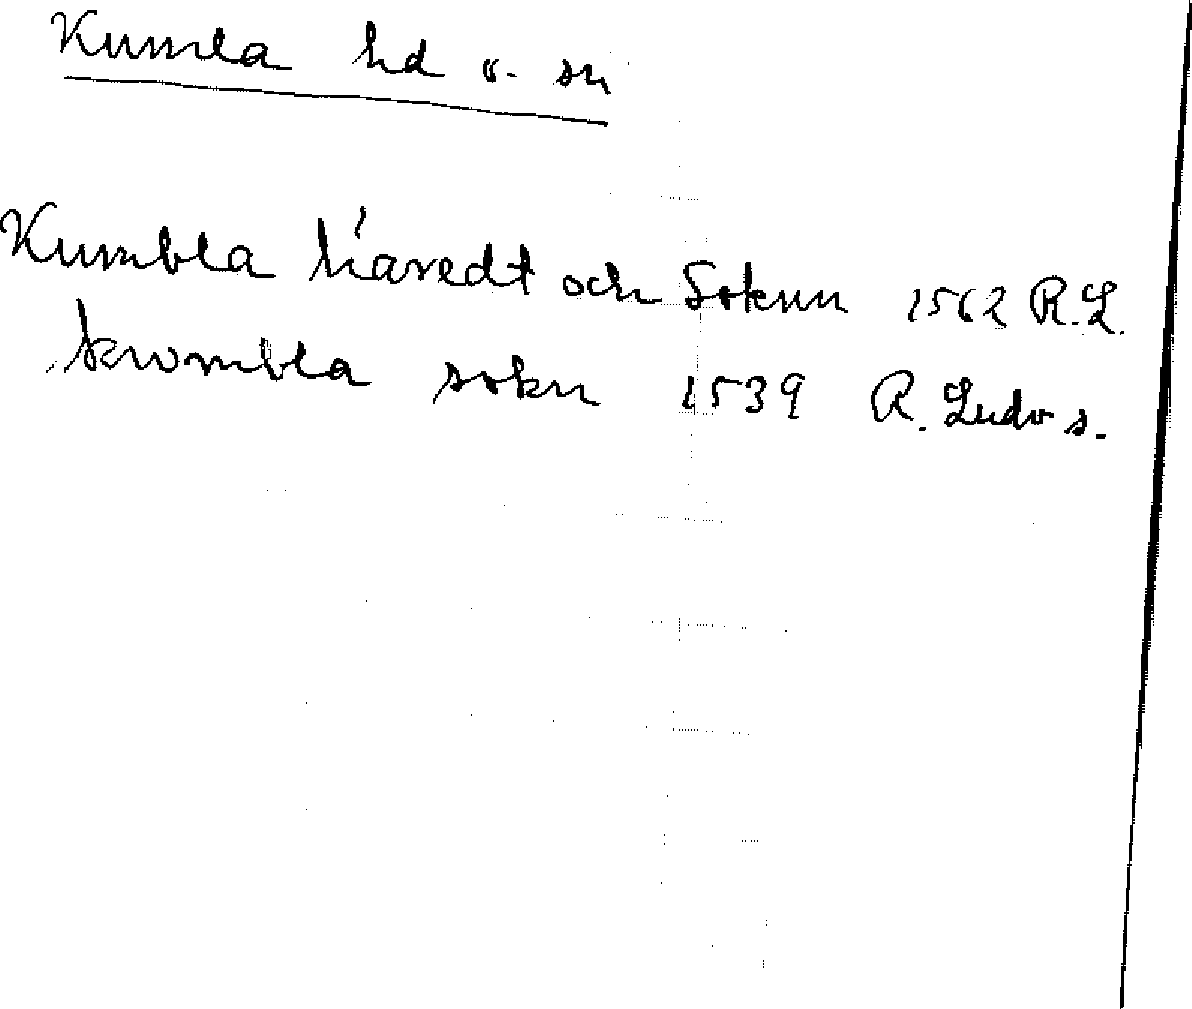 Kumla hd o. sn
Kumbla háredt och Soknn 1562 R.L.
kwmbla sokn 1539 R. Ludv s.